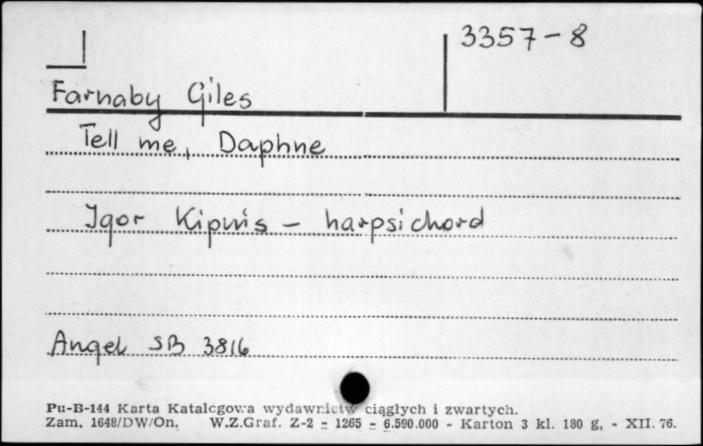 3357-8
Farnaby Giles
Tell me, Daphne
Igor Kipnis - harpsichord
Angel SB 3816
Pu-B-144 Karta Katalogowa wydawnictw ciągłych i zwartych.
Zam. 1648/DW/On. W.Z.Graf. Z-2 - 1265 - 6.590.000 - Karton 3 kl. 180 g, - XII. 76.